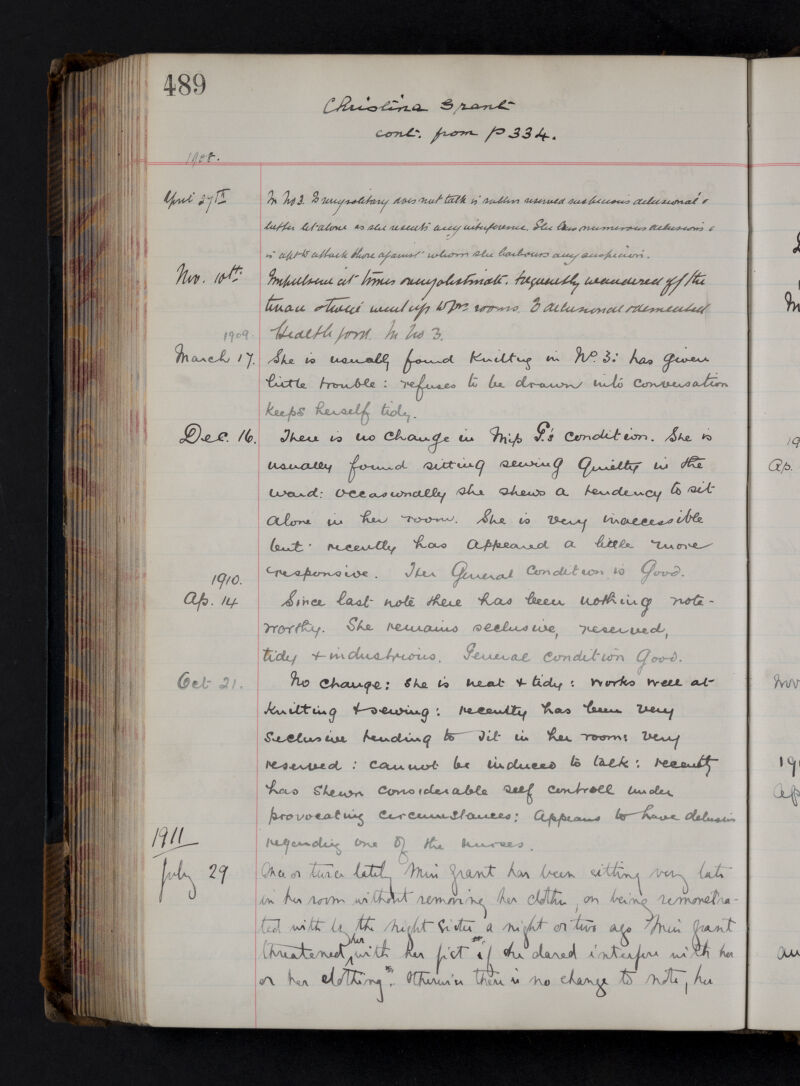 489
Christina Grant
cont. from p 334.
1908.
April 27th In No 3. Is very solitary does not talk is sullen reserved suspicious delusional &
better let alone as she resents any interference. She has numerous delusions &
is apt to attack those against whom she harbours any suspicion.
Nov. 10th. Impulsive at times very obstinate. frequently wandered off the
went up to rooms. Is delusional & demented
Health good. In No 3.
1909.
March 17. She is usually found Knitting in No. 3: has given
little trouble: refuses to be drawn into conversation
keeps herself tidy.
Dec. 16. There is no change in Miss G's condition. She is
usually found sitting sewing quietly in the
ward: occasionally she shews a tendency to sit
alone in her room. She is very inaccessible
but recently has appeared a little more
responsive. Her General Condition is Good.
1910.
Ap. 14 Since last note there has been nothing note-
worthy. She remains seclusive, reserved,
tidy & industrious. General condition Good.
Oct 21. No change: she is neat & tidy: works well at
Knitting & sewing: recently has been very
seclusive tending to sit in her room: very
reserved: cannot be induced to talk: recently
has shewn considerable self controll under
provocating circumstances: appears to have delusions
regarding one of the nurses.
1911
July 29 Once or twice lately Miss Grant has been sitting very late
in her room without removing her clothes, on being remonstra-
ted with by the night Sister a night or two ago Miss Grant
threatened her with her fist "if she dared interfere with her
or her clothing". Otherwise there is no change to note, her
19
Ap.
Nov
191
Ap